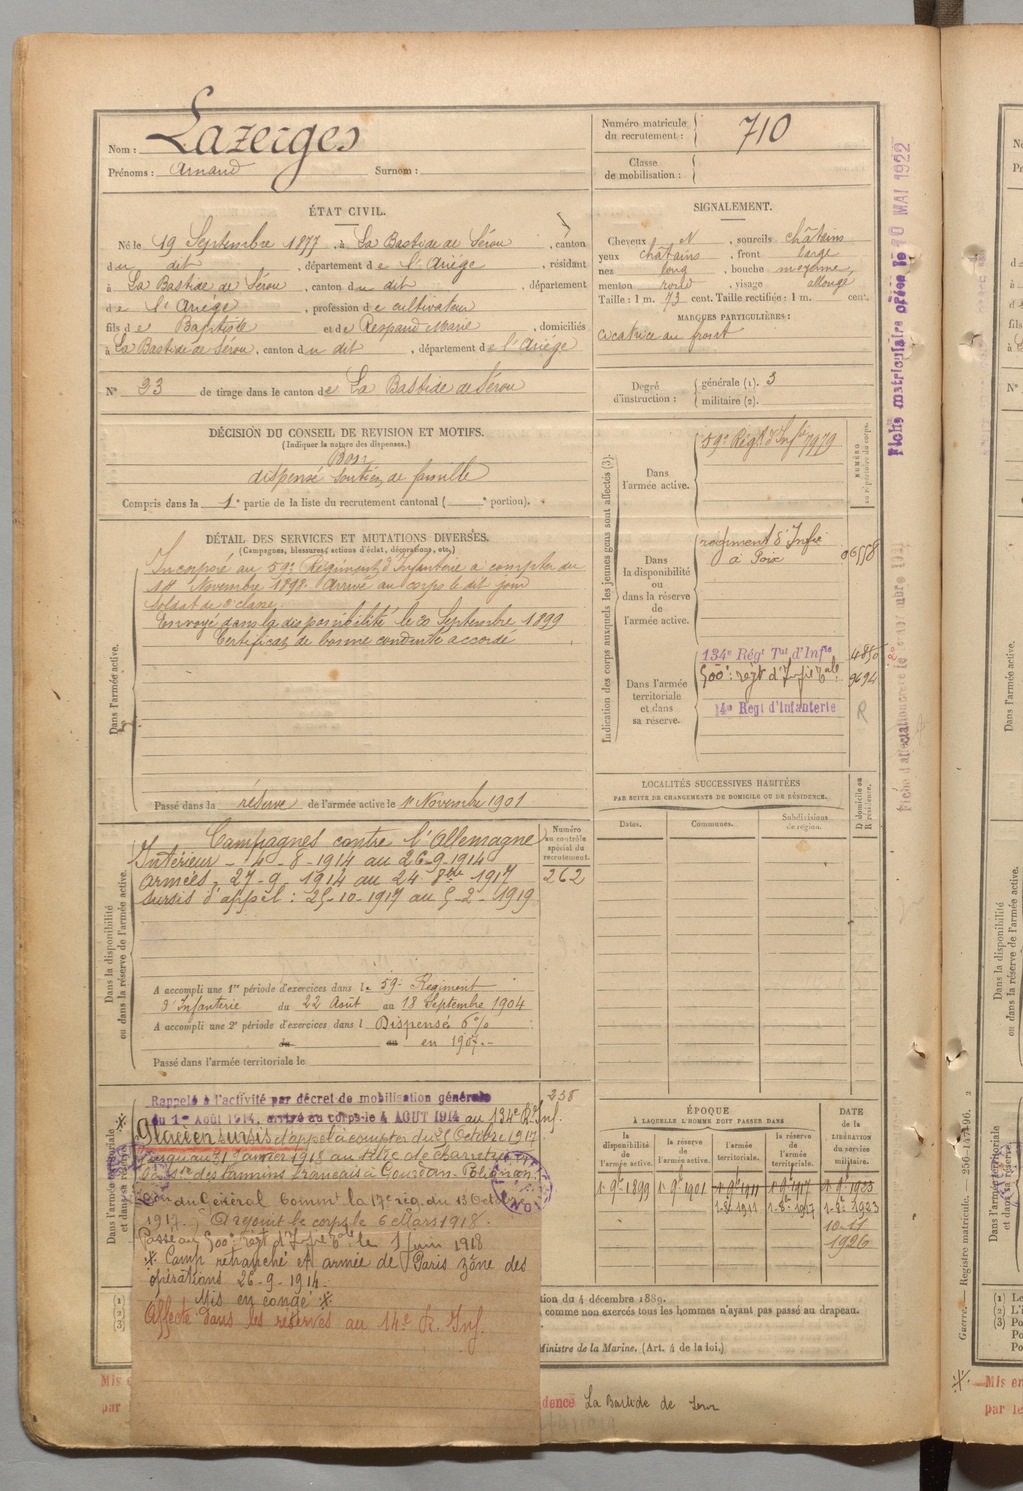 Nom : Lazerges
Prénoms : Arnaud Surnom :
Numéro matricule du recrutement : 710
Classe de mobilisation :
ÉTAT CIVIL.
Né le 19 Septembre 1877, à La Bastide de Sérou, canton
du dit, département de l'Ariège, résidant
à La Bastide de Sérou, canton du dit, département
de l'Ariège, profession de cultivateur
fils de Baptiste et de Respaud Marie, domiciliés
à La Bastide de Sérou, canton du dit, département de l'Ariège
N° 23 de tirage dans le canton de La Bastide de Sérou
SIGNALEMENT.
Cheveux et, sourcils châtains
yeux châtains, front large
nez long, bouche moyenne,
menton rond, visage allongé
Taille : 1 m. 73 cent. Taille rectifiée : 1 m. cent.
MARQUES PARTICULIÈRES :
cicatrice au front
Degré d'instruction : générale (1). 3
militaire (2).
DÉCISION DU CONSEIL DE REVISION ET MOTIFS.
(Indiquer la nature des dispenses.)
Bon
dispensé soutien de famille
Compris dans la 1e partie de la liste du recrutement cantonal ( e portion).
DÉTAIL DES SERVICES ET MUTATIONS DIVERSES.
(Campagnes, blessures, actions d'éclat, décorations, etc.)
Dans l'armée active.
Incorporé au 59e Régiment d'Infanterie à compter du
14 Novembre 1898. Arrivé au corps le dit jour
soldat de 2e classe.
Envoyé dans la disponibilité le 20 Septembre 1899
Certificat de bonne conduite accordé
Passé dans la réserve de l'armée active le 1er Novembre 1901
Indication des corps auxquels les jeunes gens sont affectés (3).
NUMÉRO au répertoire du corps.
Dans l'armée active.
59e Régt d'Infie 7979
Dans la disponibilité ou dans la réserve de l'armée active.
régiment d'Infie
à Foix 06558
Dans l'armée territoriale et dans sa réserve.
134e Régt Tal d'Infie 4850
500e régt d'Infie Tale 9694
14e Regt d'Infanterie R
LOCALITÉS SUCCESSIVES HABITÉES
PAR SUITE DE CHANGEMENTS DE DOMICILE OU DE RÉSIDENCE.
D domicile ou R résidence.
Dates. Communes. Subdivisions de région.
Dans la disponibilité ou dans la réserve de l'armée active.
Campagnes contre l'Allemagne
Intérieur - 4-8-1914 au 26-9-1914
Armées, 27-9-1914 au 24 8bre 1917
sursis d'appel : 25-10-1917 au 5-2-1919
Numéro au contrôle spécial du recrutement.
262
A accompli une 1re période d'exercices dans le 59e Régiment
d'Infanterie du 22 Août au 18 Septembre 1904
A accompli une 2e période d'exercices dans l Dispensé 6%
du au en 1907.-
Passé dans l'armée territoriale le
Dans l'armée territoriale et dans sa réserve.
Rappelé à l'activité par décret de mobilisation générale
du 1er Août 1914, arrivé au corps le 4 AOUT 1914 au 134e R. Inf.
258
Placé en sursis d'appel à compter du 25 Octobre 1917
jusqu'au 31 Janvier 1918 au titre de charretier
des tanins français à Gourdan-Polignan
Gén. du Général Commt la 17e rég. du 13 Octobre
1917. Rejoint le corps le 6 Mars 1918.
Passé au 500e régt d'Infie Tale le 1 Juin 1918
* Camp retranché et armée de Paris zône des
opérations 26-9-1914.
Mis en congé *
Affecté dans les réserves au 14e R. Inf.
ÉPOQUE
À LAQUELLE L'HOMME DOIT PASSER DANS
DATE DE LA LIBÉRATION du service militaire.
la disponibilité de l'armée active.
la réserve de l'armée active.
l'armée territoriale.
la réserve de l'armée territoriale.
1-9e 1899 1-9e 1901 1-9e 1911 1-9e 1917 1-9e 1923
1-8e 1911 1-8e 1917 1-8e 1923
10-11
1926
tion du 4 décembre 1889.
comme non exercés tous les hommes n'ayant pas passé au drapeau.
Ministre de la Marine. (Art. 4 de la loi.)
(1)
(2)
(3)
Mis e
par
dence La Bastide de Serou
Fiche matriculaire créée le 10 MAI 1922
Guerre. — Registre matricule. — 250-147-96.
Mis en
par le